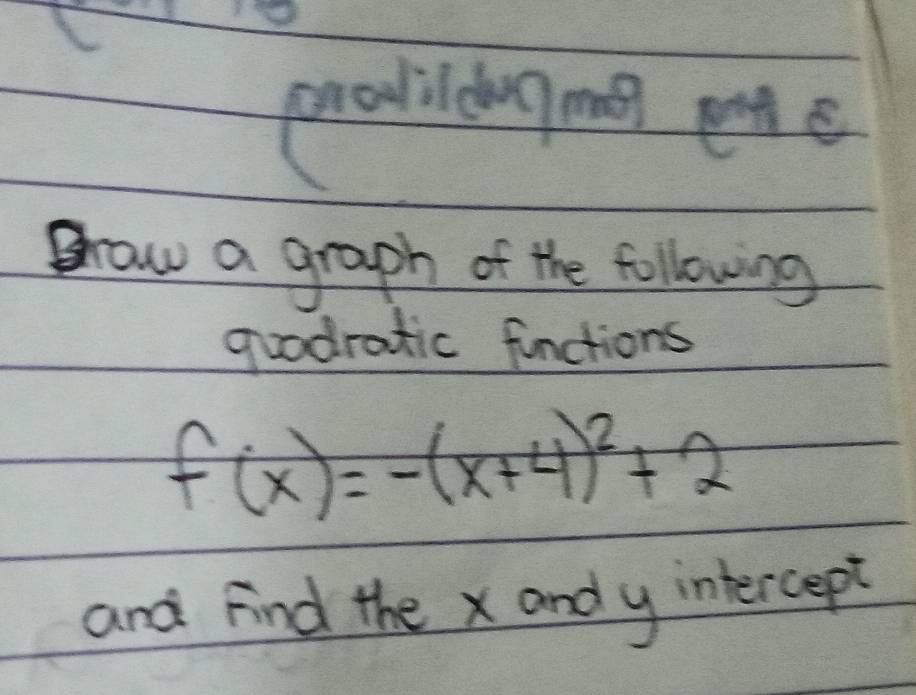 Draw a graph of the following
quadratic functions
f(x)=-(x+4)²+2
and Find the x and y intercept